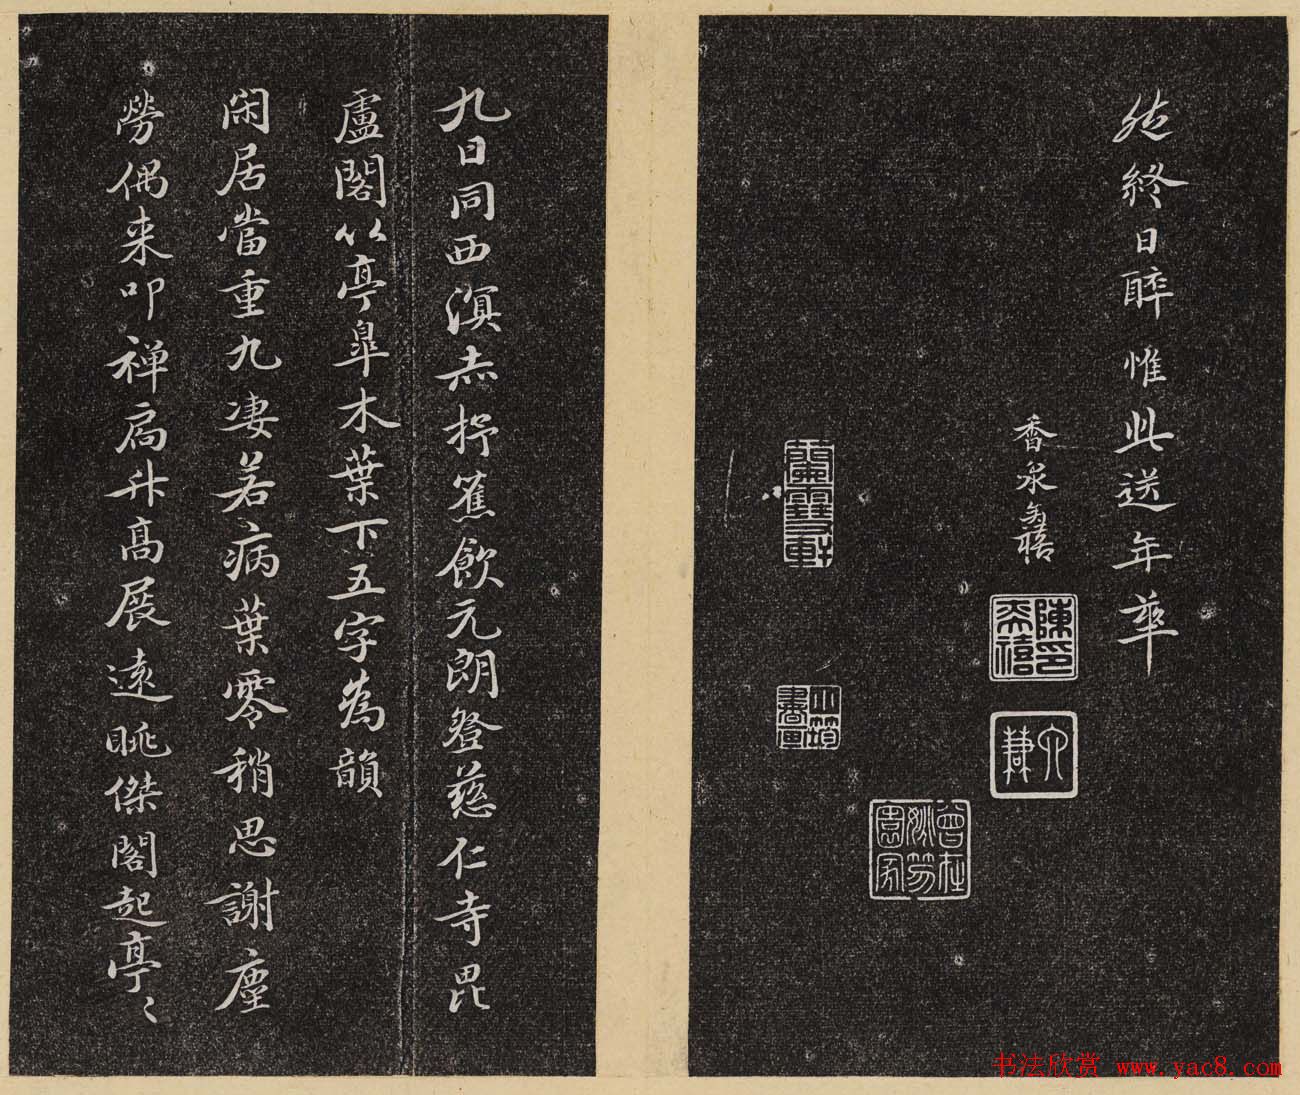 然終日醉惟此送年華
香泉奕禧
陳印奕禧
六謙
九日同西溟亦抒蕉飲元朗登慈仁寺毘
盧閣以亭皋木葉下五字為韻
閑居當重九凄若病葉零稍思謝塵
勞偶来叩禅扃升高展遠眺傑閣起亭〻
书法欣赏 www.yac8.com